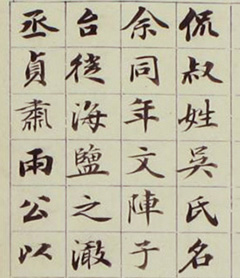 侃叔姓吳氏名
余同年文陣子
台徙海鹽之澉
丞貞肅雨公以